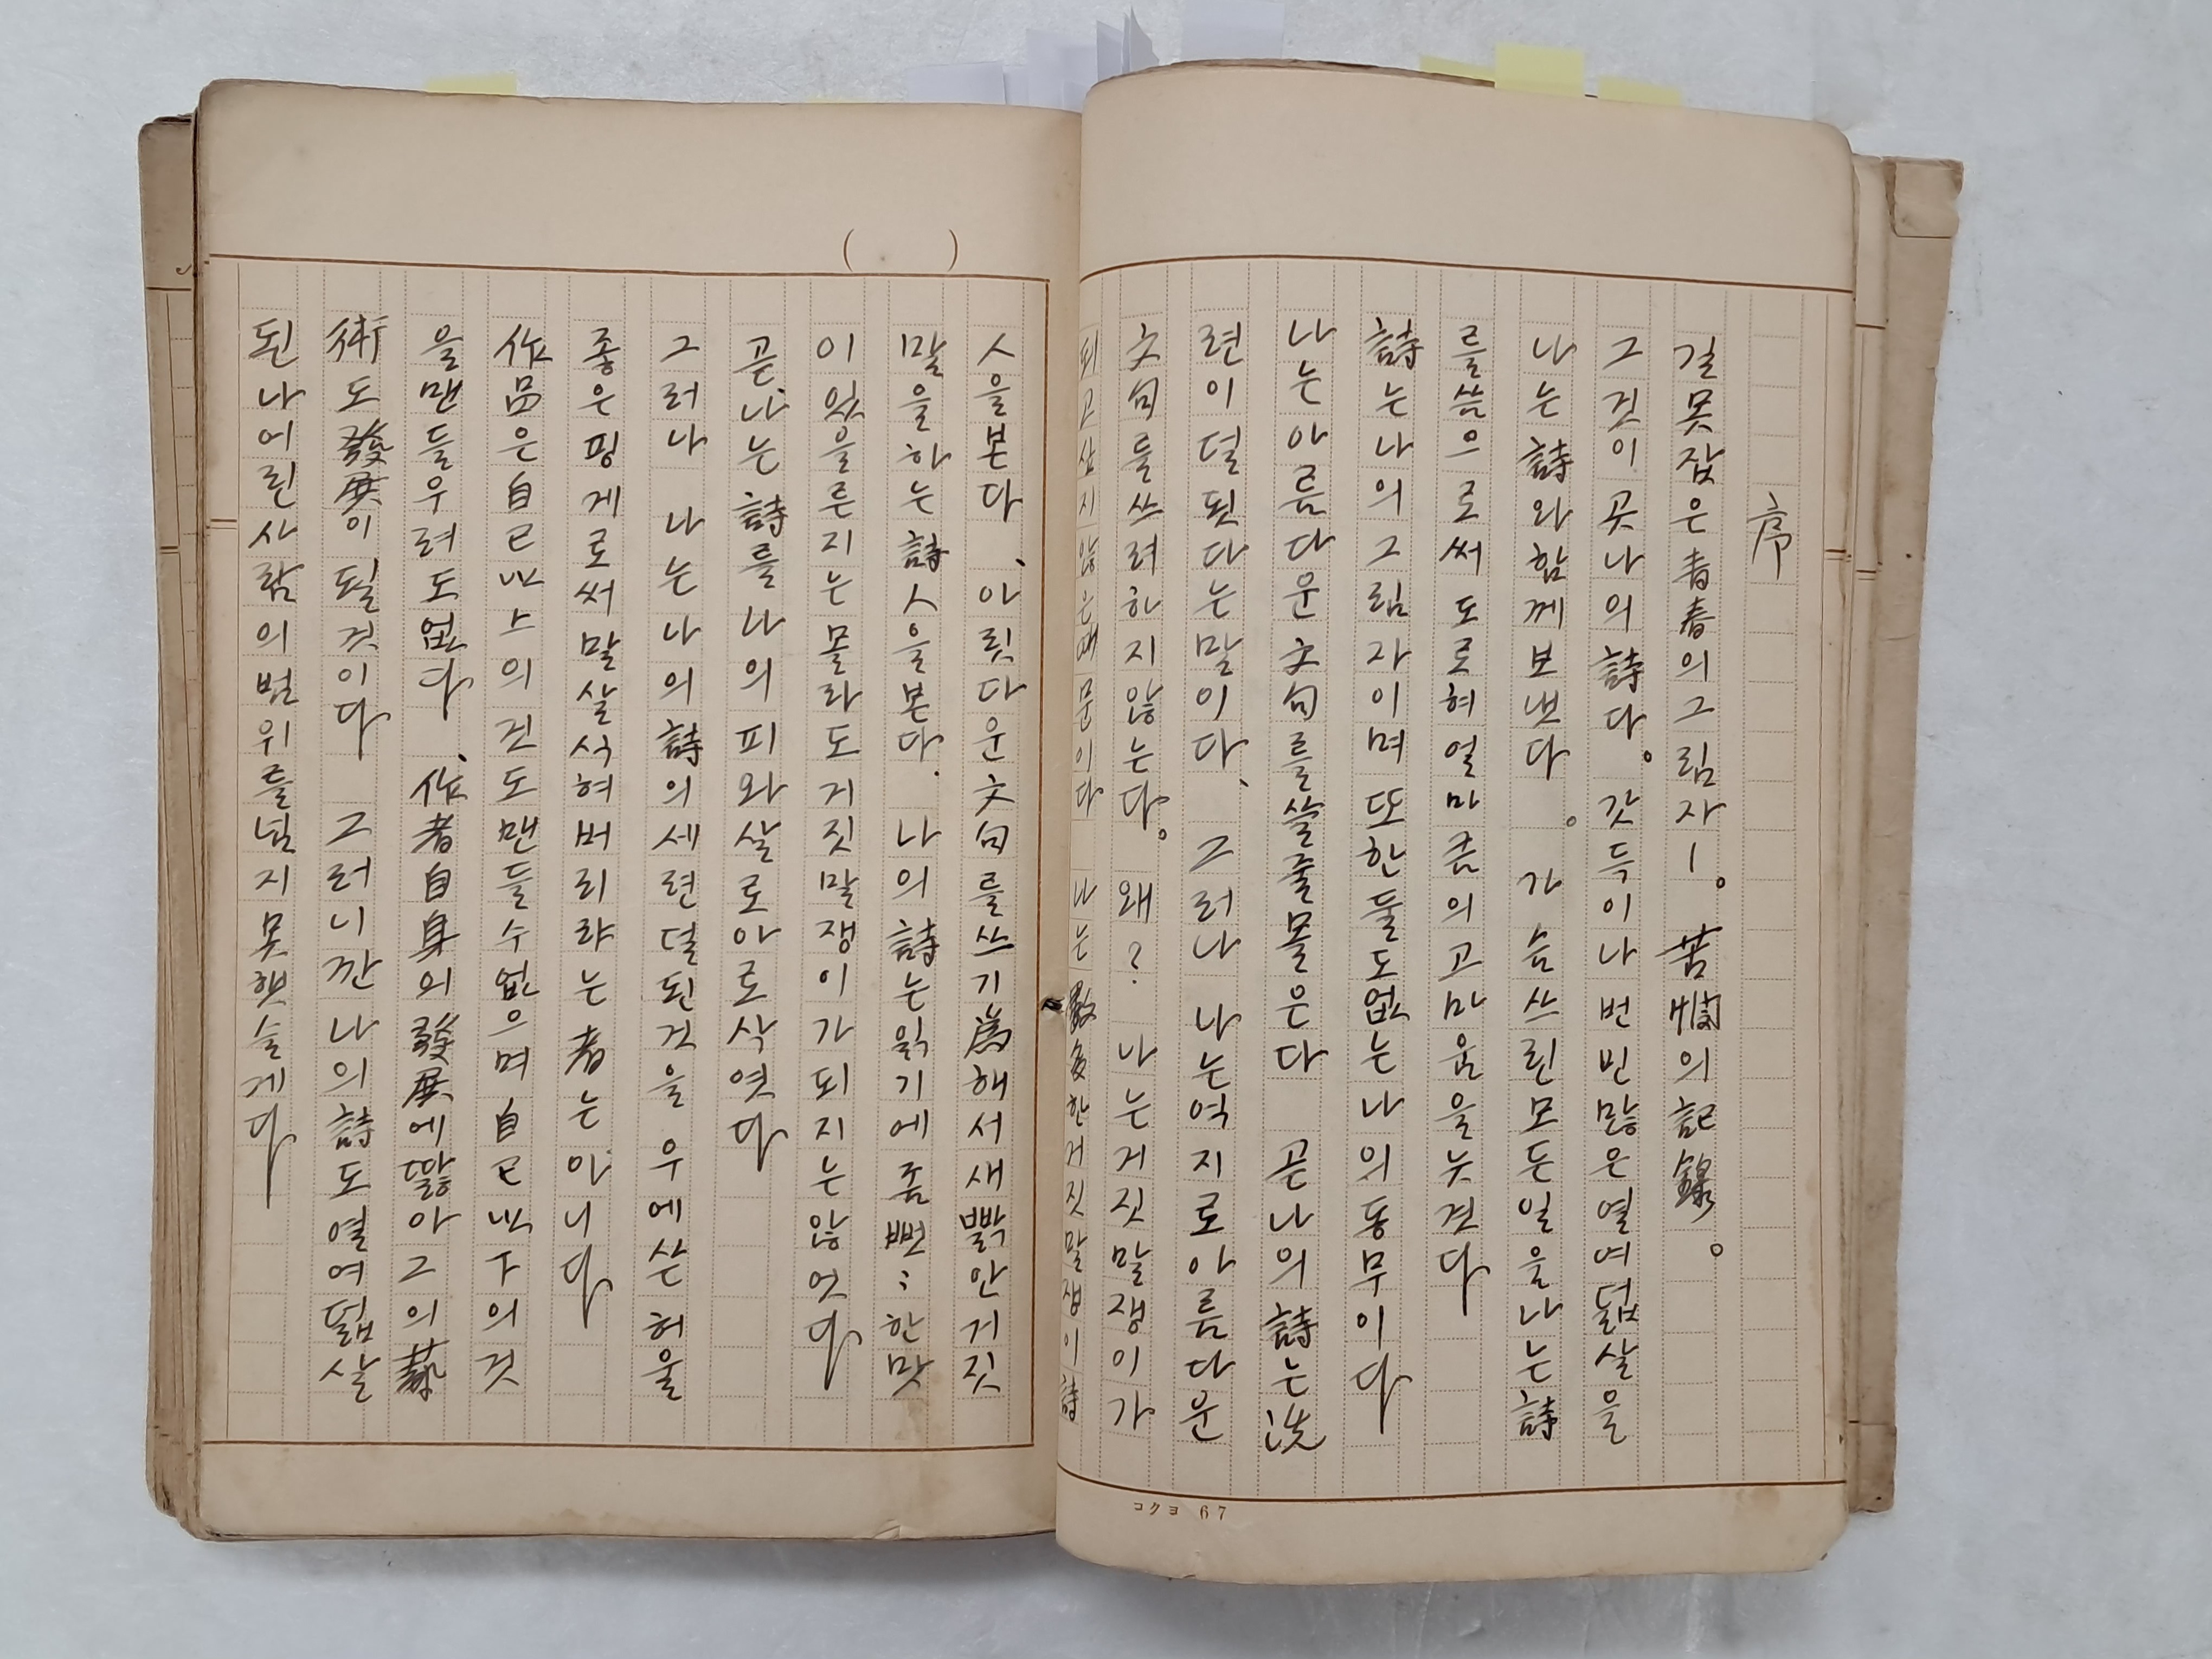 序
길못잡은靑春의그림자ㅡ。苦憫의記錄。
그것이곳나의詩다。갓득이나번민많은열여덟살을
나는詩와함께보냇다。가슴쓰린모든일을나는詩
를씀으로써도로혀얼마큼의고마움을늣겻다
詩는나의그림자이며또한둘도없는나의동무이다
나는아름다운文句를쓸줄몰은다 곧나의詩는洗
련이덜됫다는말이다、그러나 나는억지로아름다운
文句를쓰려하지않는다。왜? 나는거짓말쟁이가
되고싶지않은때문이다 나는數多한거짓말쟁이詩
人을본다、아릿다운文句를쓰기爲해서새빩안거짓
말을하는詩人을본다. 나의詩는읽기에좀뻣⋮한맛
이있을른지는몰라도거짓말쟁이가되지는않엇다
곧、나는詩를나의피와살로아로삭엿다
그러나 나는나의詩의세련덜된것을우에쓴허울
좋은핑게로써말살식혀버리랴는者는아니다
作品은自己以上의것도맨들수없으며自己以下의것
을맨들우려도없다、作者自身의發展에딿아그의藝
術도發展이될것이다 그러니깐나의詩도열여덟살
된나어린사람의범위를넘지못햇슬게다
( )
コクヨ 67